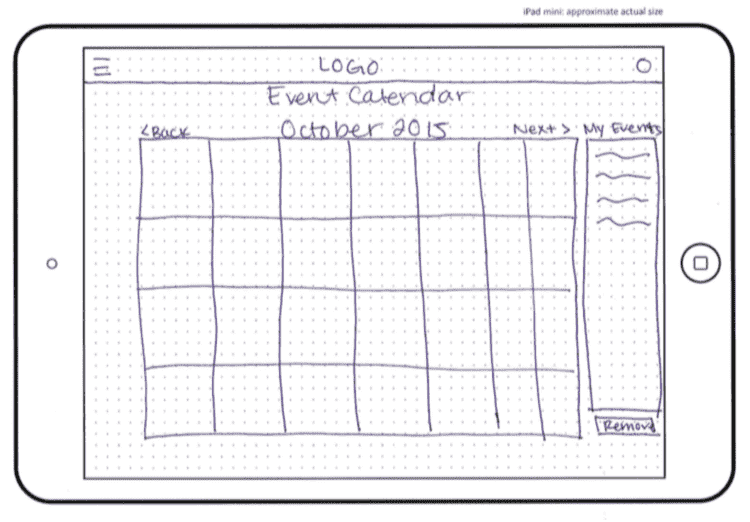 iPad mini: approximate actual size
LOGO
Event Calendar
<Back October 2015 Next > My Events
Remove